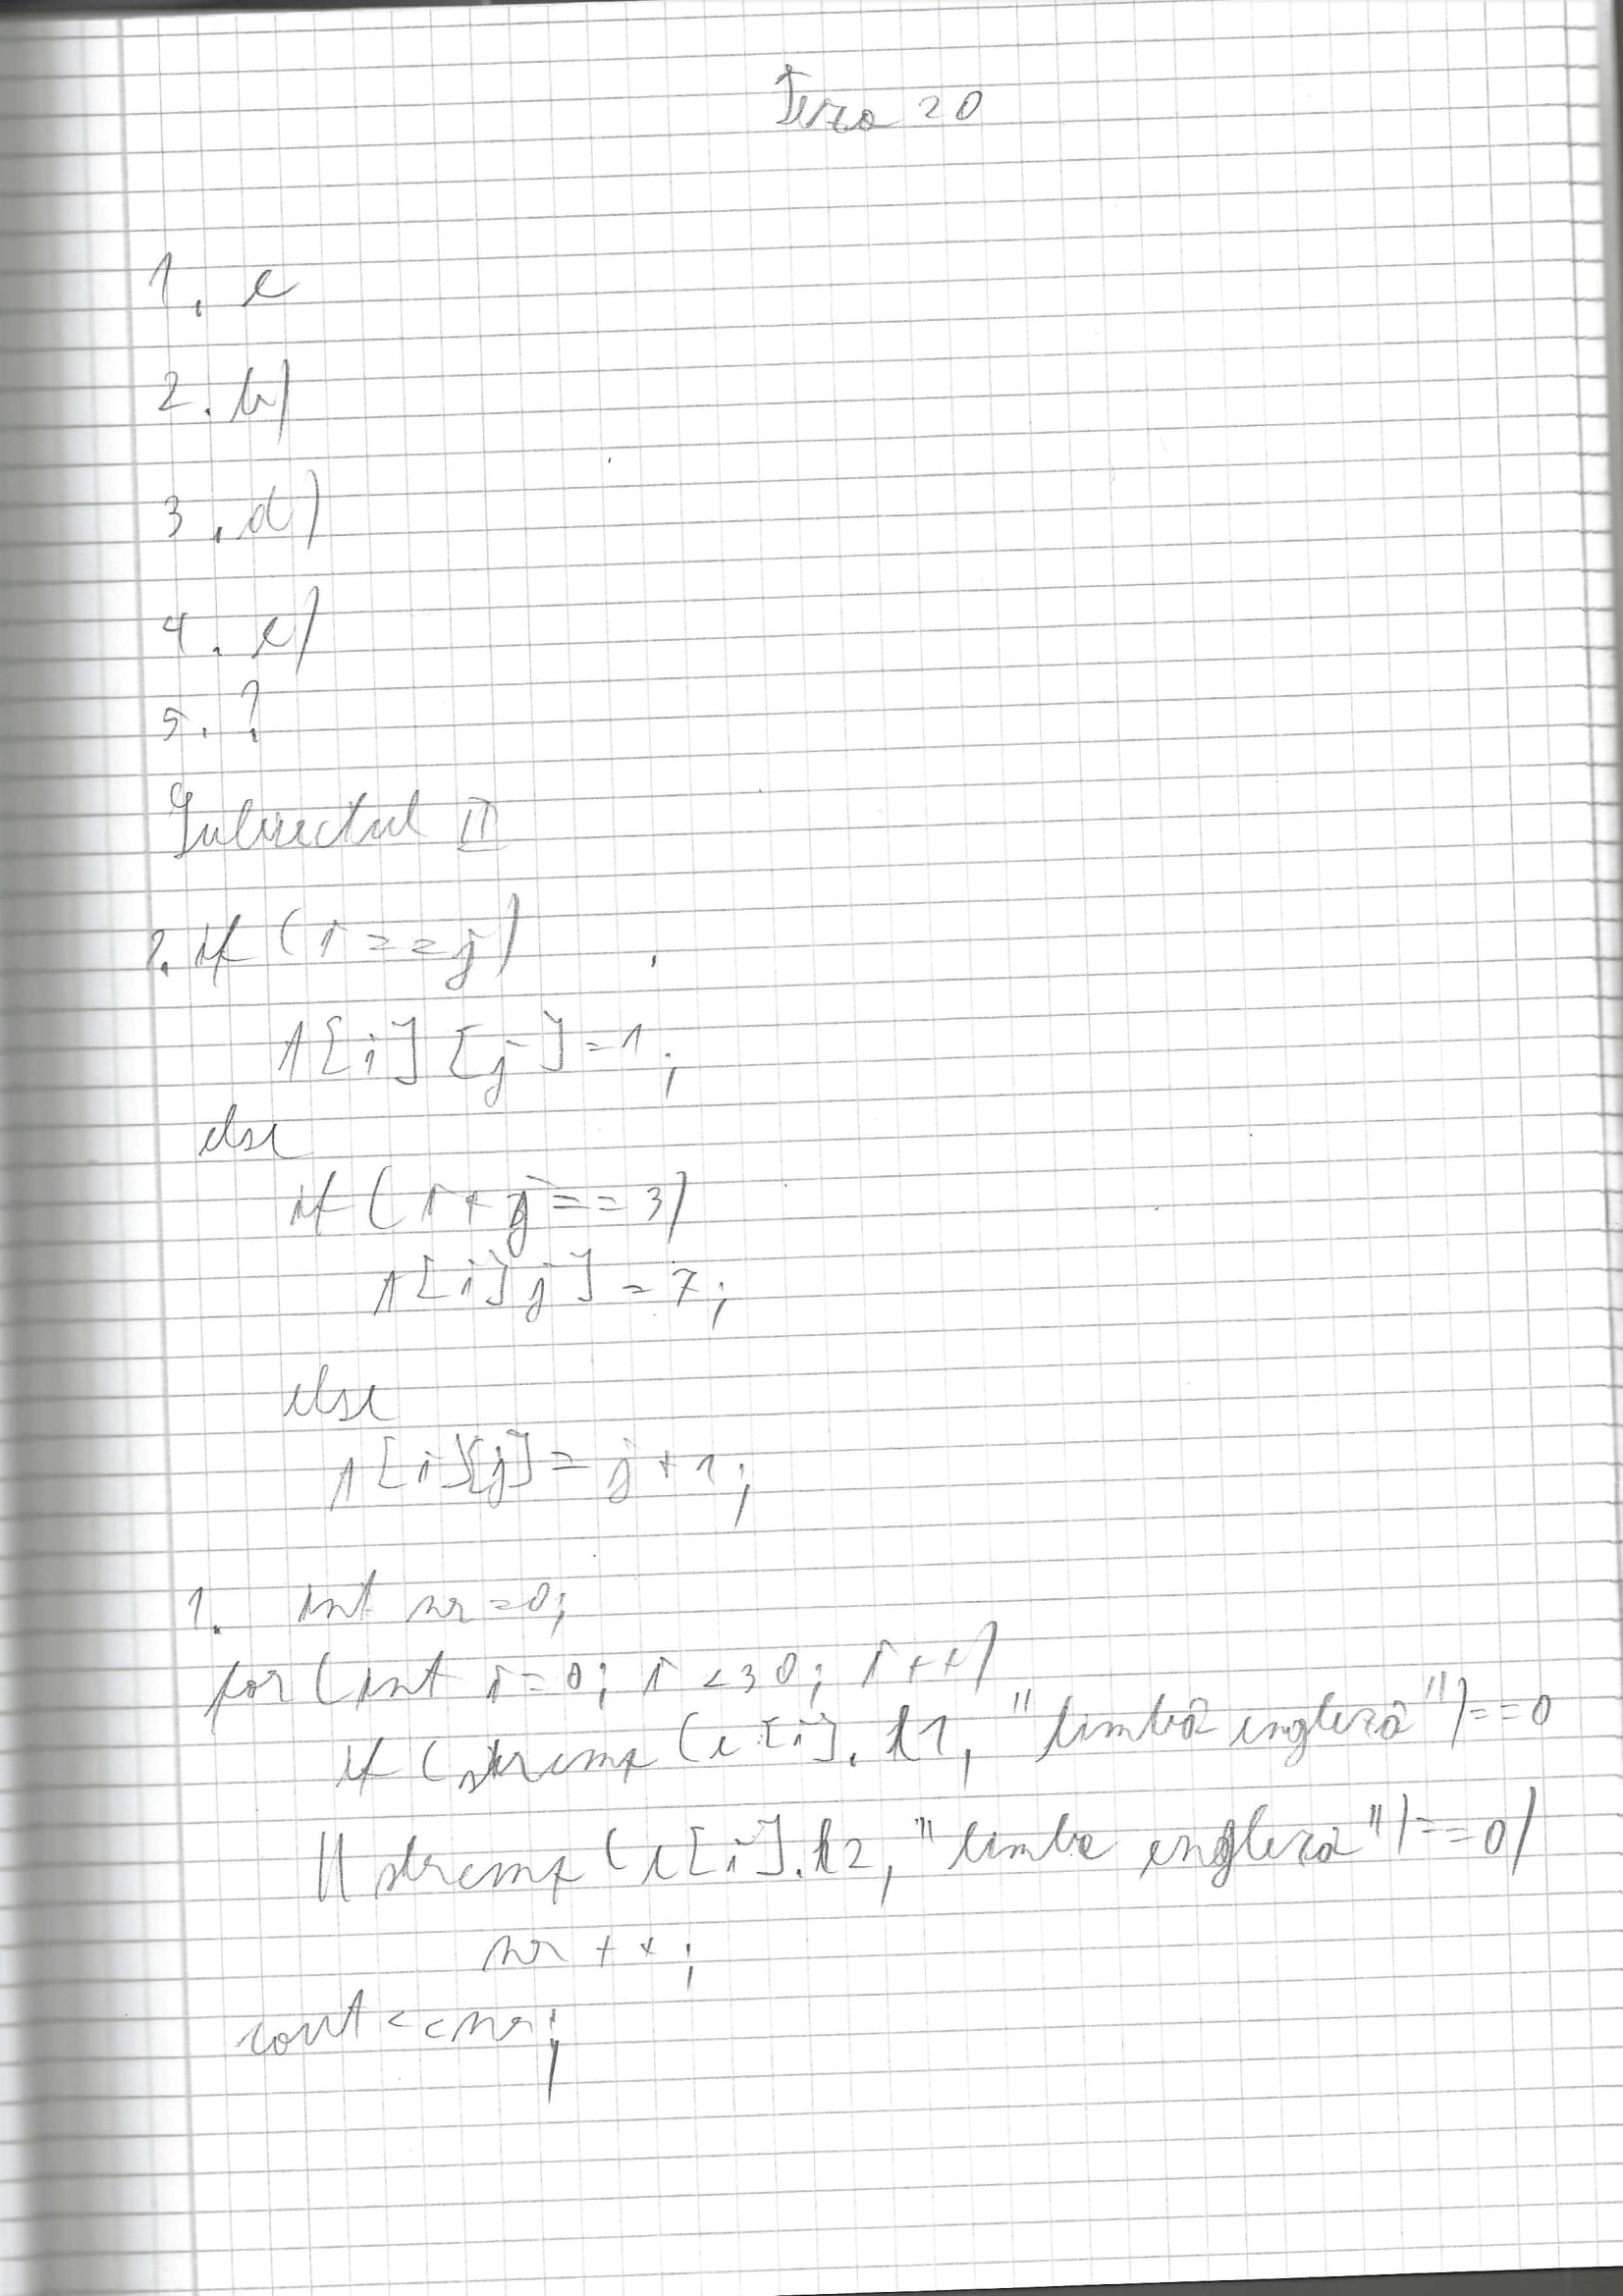 Teza 20
1. c
2. b)
3. d)
4. c)
5. ?
Subiectul II
2. if (i==j)
A[i][j]=1;
else
if (i+j==3)
A[i]j]=7;
else
A[i][j]=j+1;
1. int nr=0;
for (int i=0; i<30; i++)
if (strcmp (c[i].l1, "limbă engleză")==0
|| strcmp (c[i].l2, "limba engleză")==0)
nr++;
cout<<nr;